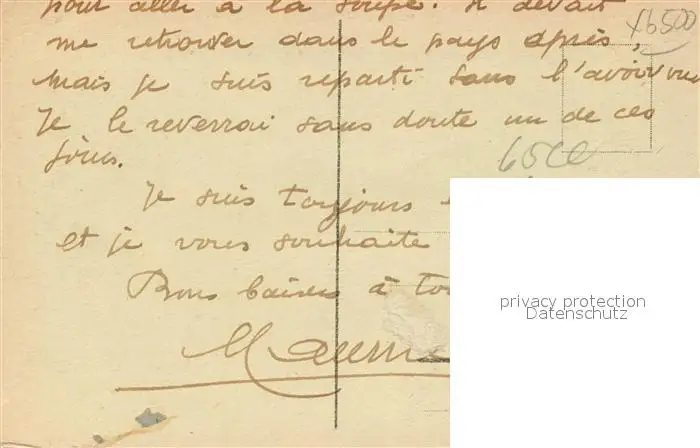 pour aller à la soupe. Il devait
me retrouver dans le pays après,
mais je suis reparti sans l'avoir vu
Je le reverrai sans doute un de ces
jours.
Je suis toujours
et je vous souhaite
Bons baisers à to
privacy protection
Datenschutz